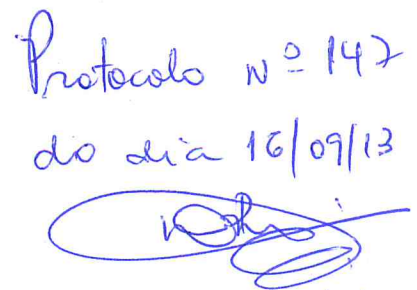 Protocolo Nº 147
do dia 16/09/13